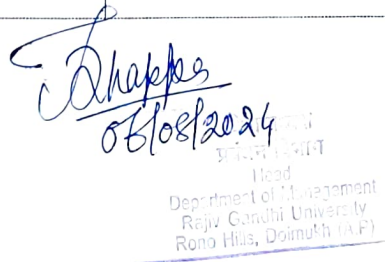 06/08/2024
प्रबंधन विभाग
Head
Department of Management
Rajiv Gandhi University
Rono Hills, Doimukh (A.P)